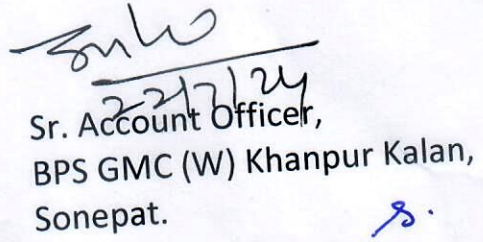 22/7/24
Sr. Account Officer,
BPS GMC (W) Khanpur Kalan,
Sonepat.